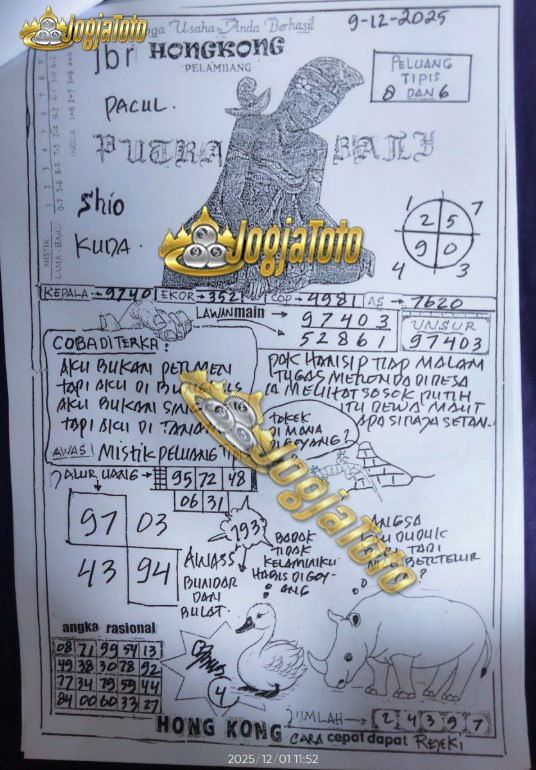 JogjaToto
Usaha, Anda Berhasil
9-12-2025
HONGKONG
PELAMBANG
PELUANG
TIPIS
0 DAN 6
PACUL.
PUTRA BALI
Shio
KUDA.
JogjaToto
1 7
2 5
9 0
4 3
KEPALA → 9740 EKOR → 3521 COP → 4981 AS → 7620
LAWAN main → 97403
52861
UNSUR
97403
COBA DITERKA:
AKU BUKAN PERMEN
TAPI AKU DI BUNGKUS
AKU BUKAN
TAPI AKU DI
AWAS! MISTIK PELUANG TIPIS
PAK HANSIP TIAP MALAM
TUGAS MERONDA DI DESA
IA MELIHAT SOSOK PUTIH
ITU DEWA MAUT
APA SIRAJA SETAN.
TOKEK
DI MANA
DIGOYANG?
JALUR UANG → 95 72 48
06 31
JogjaToto
97 03
43 94
793
AWASS
BUNDAR
DAN
BULAT.
BADAK
TIDAK
KELAMINKU
HABIS DIGOY-
ANG
ANGSA
DUDUK
TAPI
BERTELUR
?
angka rasional
08 71 99 54 13
49 38 30 78 92
77 34 79 59 44
84 00 60 33 27
4
JUMLAH → 2 4 3 9 7
HONG KONG CARA cepat dapat REJEKI
2025/12/01 11:52